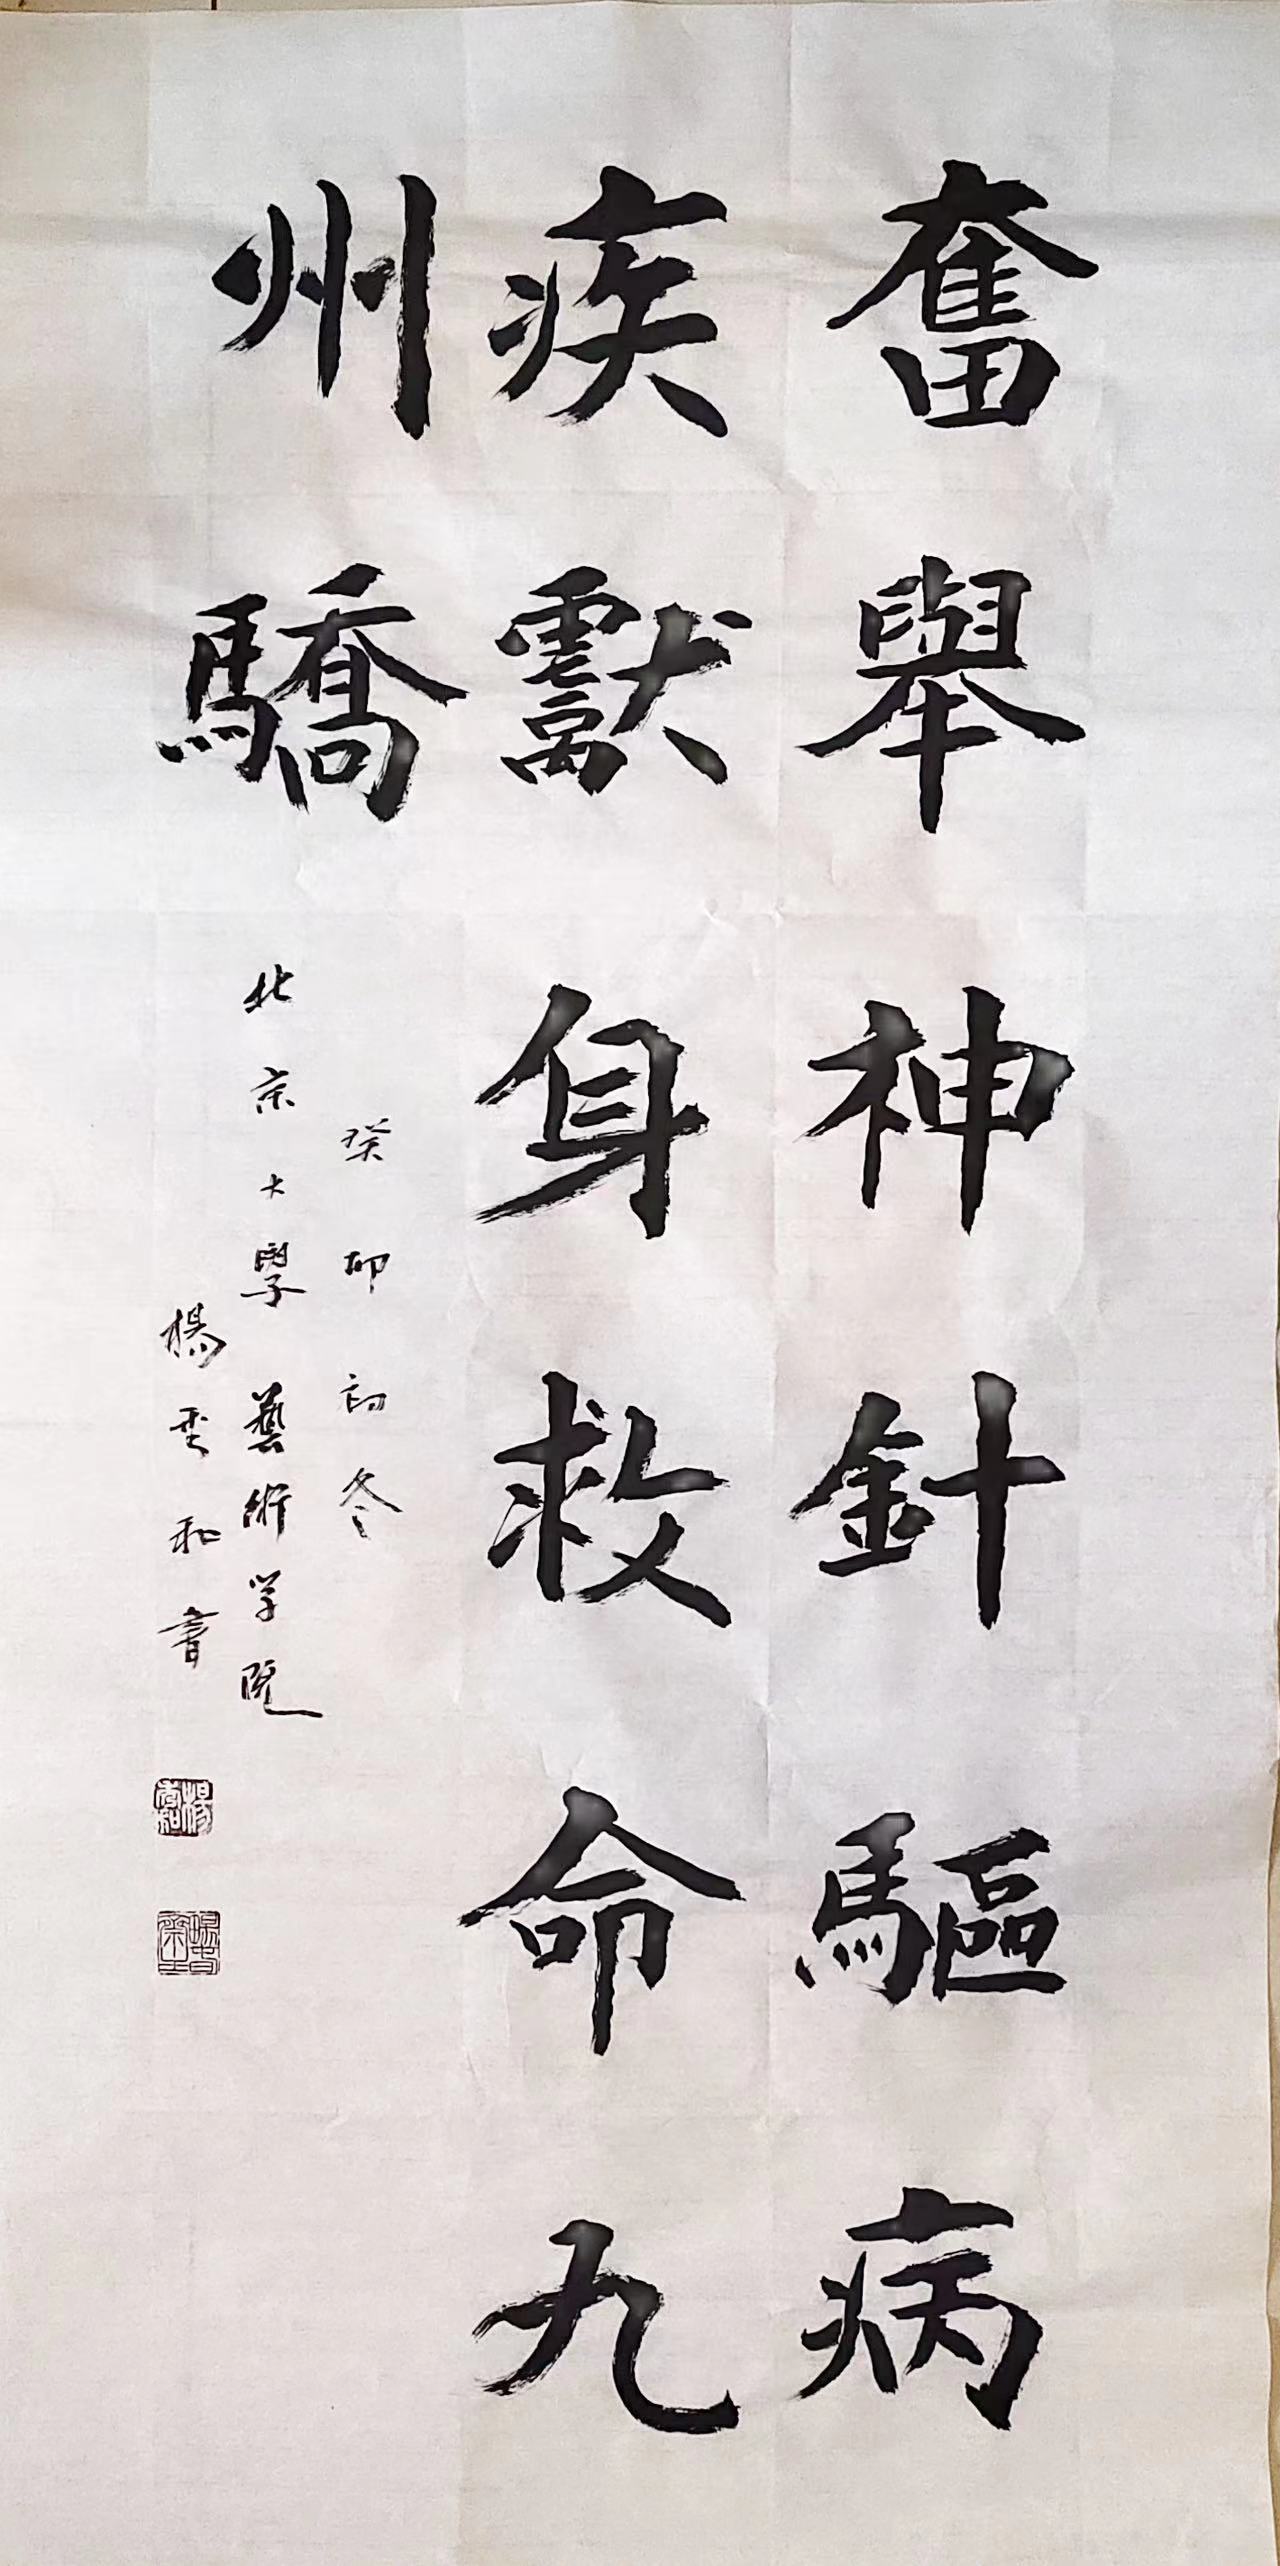 奮舉神針驅病
疾獻身救命九
州驕
癸卯初冬
北京大學藝術学院
楊重和書